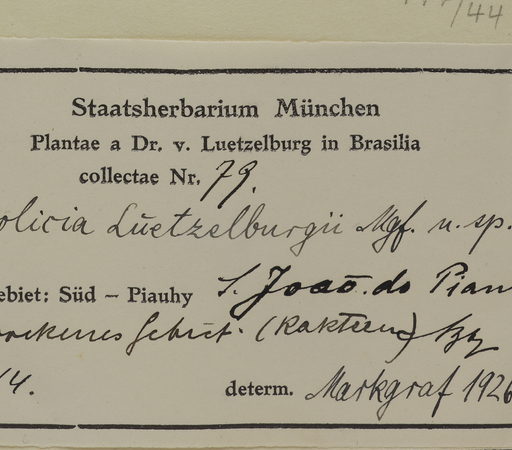 /44
Staatsherbarium München
Plantae a Dr. v. Luetzelburg in Brasilia
collectae Nr. 79.
olicia Luetzelburgii Mgf. n. sp.
ebiet: Süd – Piauhy S. Joaō do Piau
rockenes Gebiet. (Kakteen)
14. determ. Markgraf 1926